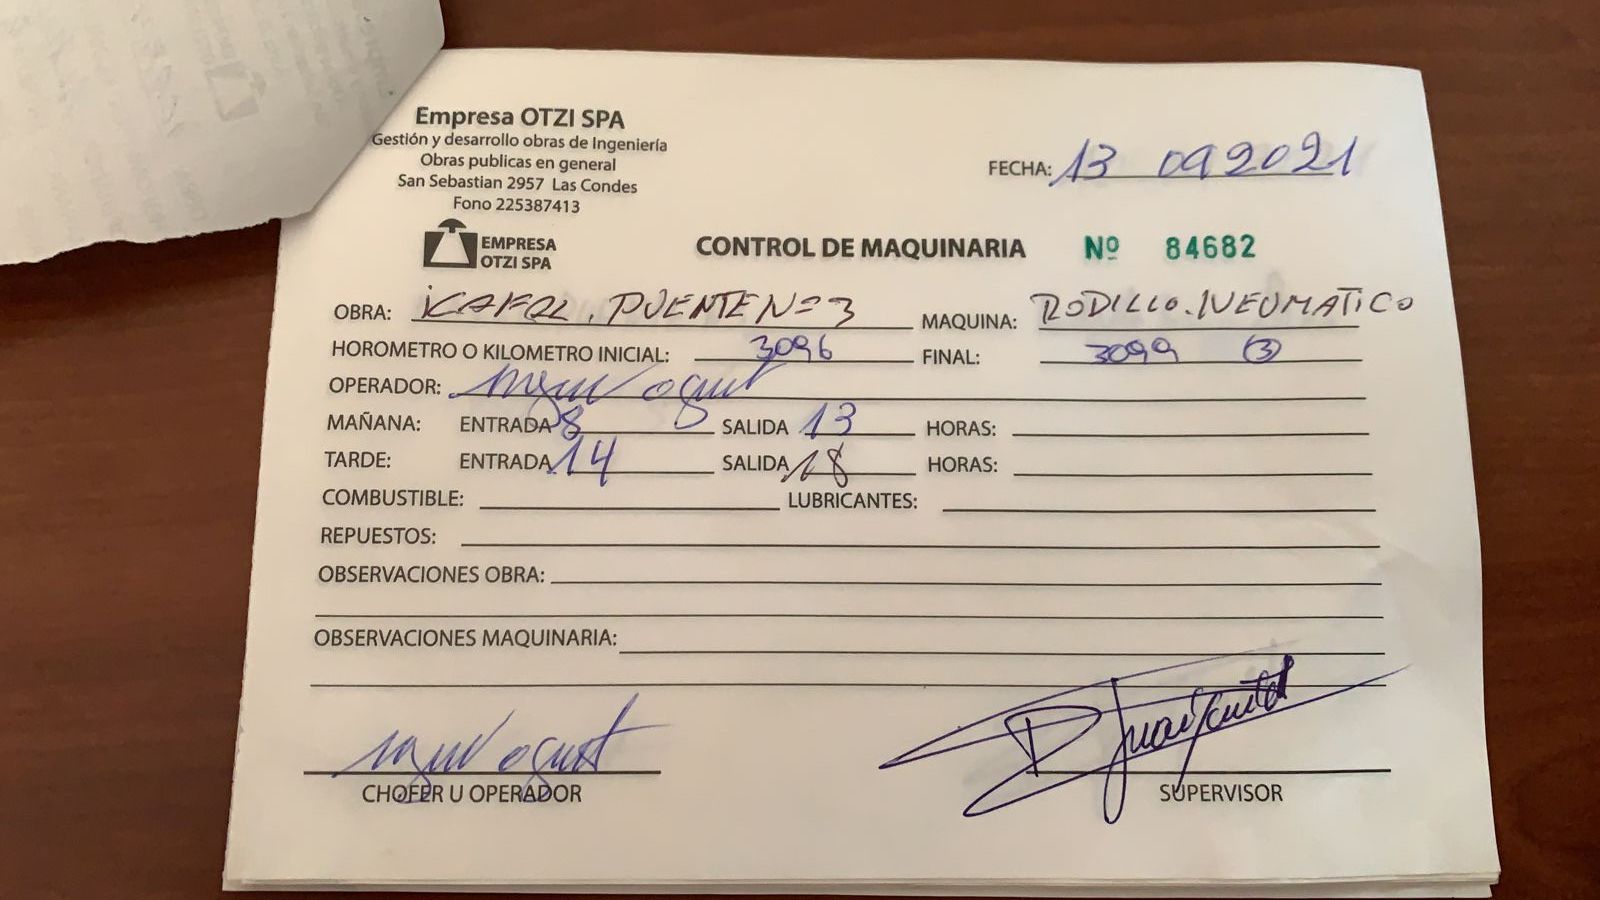 Empresa OTZI SPA
Gestión y desarrollo obras de Ingeniería
Obras publicas en general
San Sebastian 2957 Las Condes
Fono 225387413
FECHA: 13 09 2021
EMPRESA
OTZI SPA
CONTROL DE MAQUINARIA Nº 84682
OBRA: PUENTE N=3 MAQUINA: RODILLO. NEUMATICO
HOROMETRO O KILOMETRO INICIAL: 3096 FINAL: 3099 (3)
OPERADOR:
MAÑANA: ENTRADA 8 SALIDA 13 HORAS:
TARDE: ENTRADA 14 SALIDA 18 HORAS:
COMBUSTIBLE: LUBRICANTES:
REPUESTOS:
OBSERVACIONES OBRA:
OBSERVACIONES MAQUINARIA:
CHOFER U OPERADOR SUPERVISOR